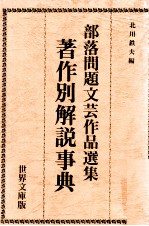 北川鉄夫編
部落問題文芸作品選集
著作別解説事典
世界文庫版